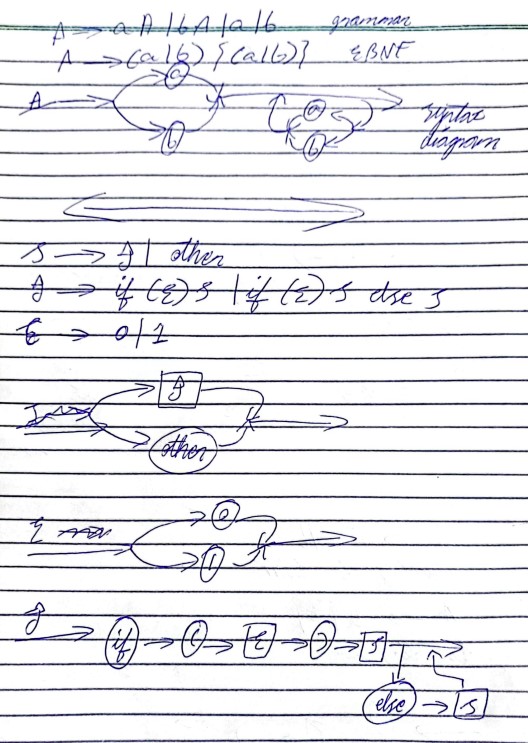 A → aA | bA | a | b   grammar
A → (a|b) {(a|b)}   EBNF
A a b a b syntax diagram
S → I | other
I → if (E) S | if (E) S else S
E → 0 | 1
I other
E 0 1
I if ( E ) S
else S